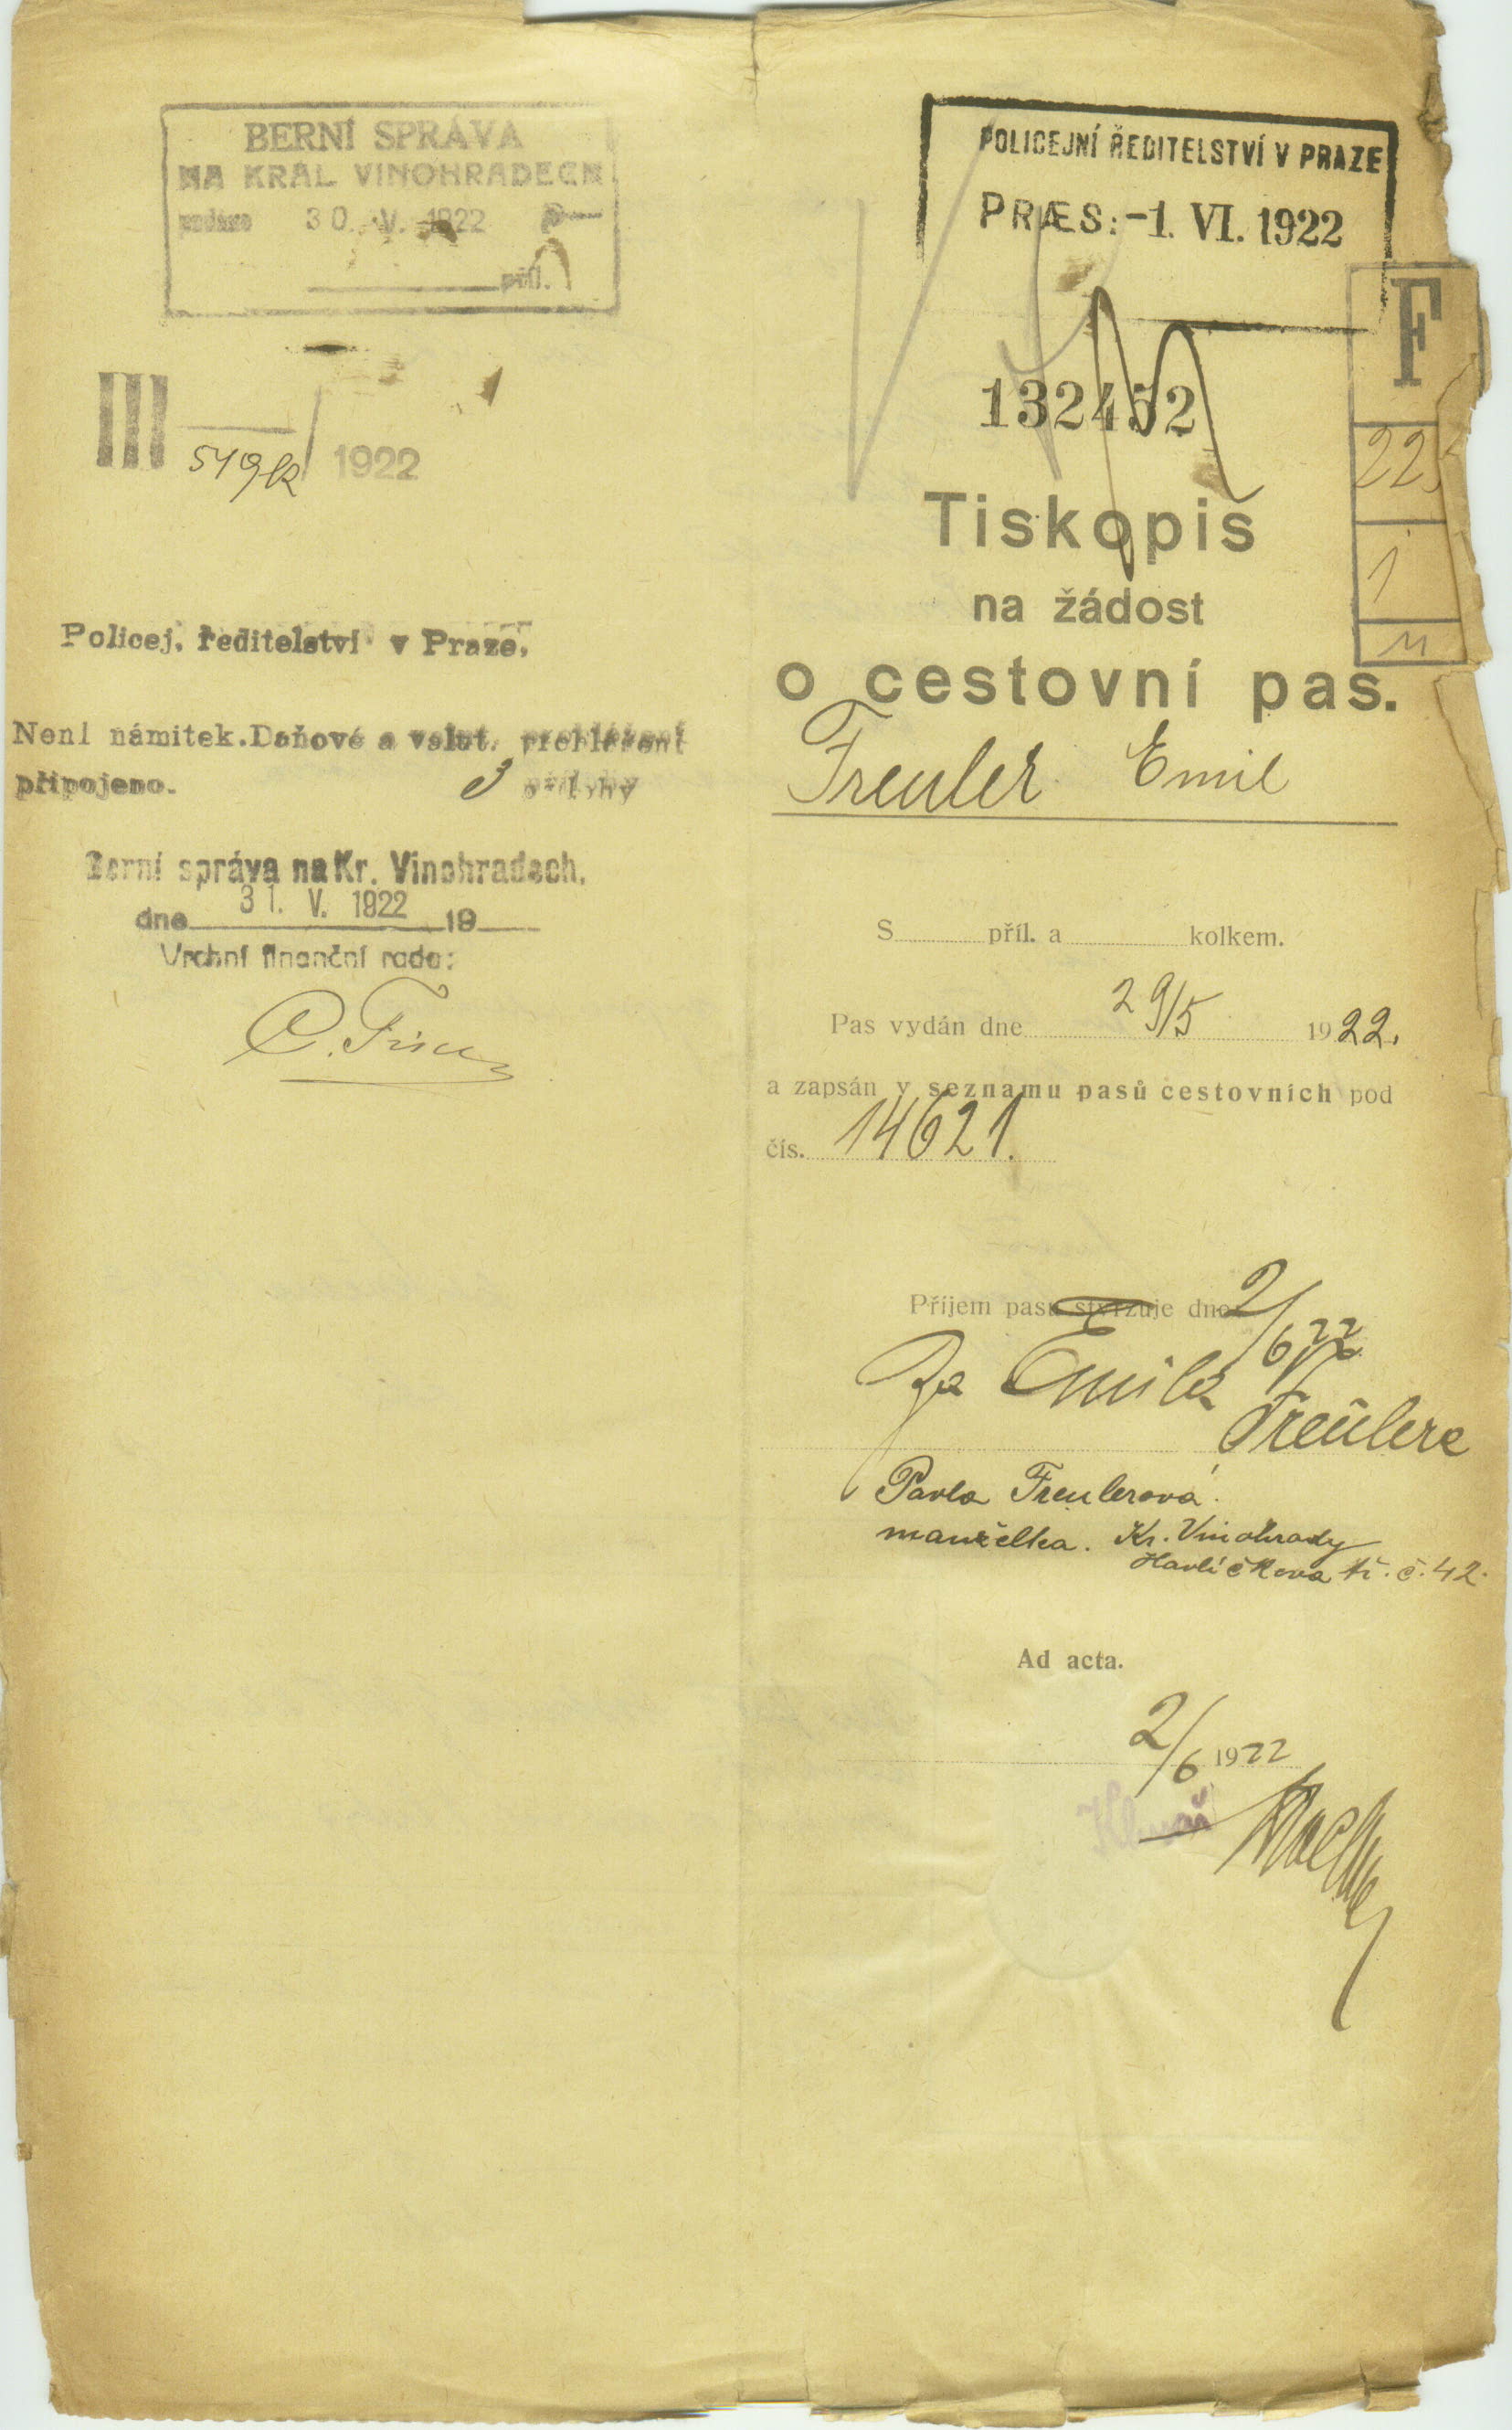 BERNÍ SPRÁVA
NA KRAL VINOHRADECH
podáno 30. V. 1922
příl.
III 1922
Policej. ředitelství v Praze.
Není námitek. Daňové a valut. prohlášení
připojeno. 3 přílohy
Berní správa na Kr. Vinohradech,
dne 31. V. 1922 19
Vrchní finanční rada:
POLICEJNÍ ŘEDITELSTVÍ V PRAZE
PRÆS: -1. VI. 1922
132452
F
225
1
11
Tiskopis
na žádost
o cestovní pas.
Freuler Emil
S příl. a kolkem.
Pas vydán dne 29/5 1922.
a zapsán v seznamu pasů cestovních pod
čís. 14621.
Příjem pasu stvrzuje dne 2/6 22
Za Emila
Freulera
Pavla Freulerová
manželka. Kr. Vinohrady
Havlíčkova tř. č. 42.
Ad acta.
2/6 1922